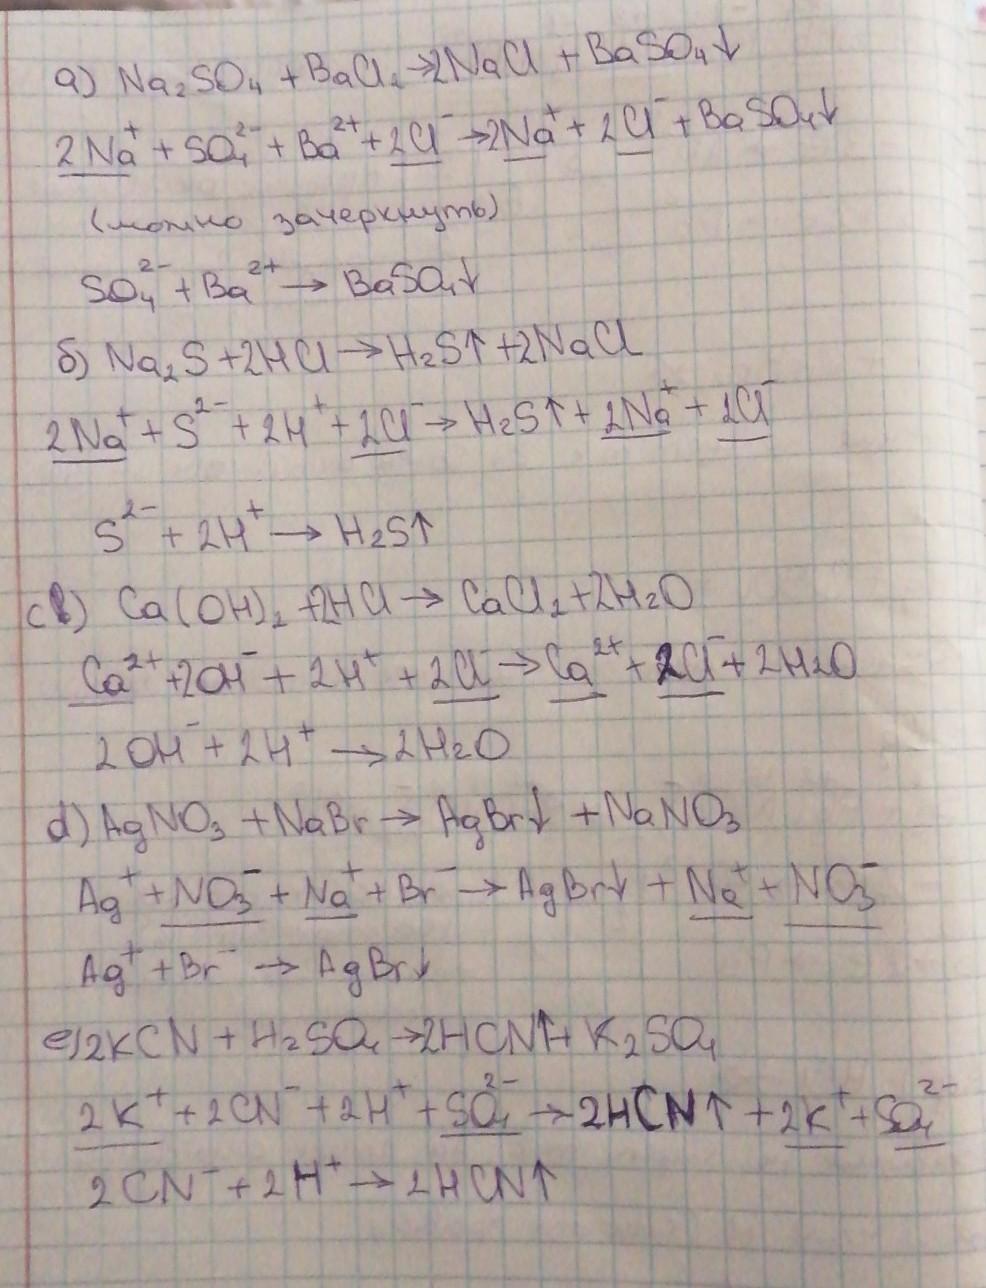 а) Na₂SO₄ + BaCl₂ → 2NaCl + BaSO₄↓
2Na⁺ + SO₄²⁻ + Ba²⁺ + 2Cl⁻ → 2Na⁺ + 2Cl⁻ + BaSO₄↓
(можно зачеркнуть)
SO₄²⁻ + Ba²⁺ → BaSO₄↓
б) Na₂S + 2HCl → H₂S↑ + 2NaCl
2Na⁺ + S²⁻ + 2H⁺ + 2Cl⁻ → H₂S↑ + 2Na⁺ + 2Cl⁻
S²⁻ + 2H⁺ → H₂S↑
c) Ca(OH)₂ + 2HCl → CaCl₂ + 2H₂O
Ca²⁺ + 2OH⁻ + 2H⁺ + 2Cl⁻ → Ca²⁺ + 2Cl⁻ + 2H₂O
2OH⁻ + 2H⁺ → 2H₂O
d) AgNO₃ + NaBr → AgBr↓ + NaNO₃
Ag⁺ + NO₃⁻ + Na⁺ + Br⁻ → AgBr↓ + Na⁺ + NO₃⁻
Ag⁺ + Br⁻ → AgBr↓
e) 2KCN + H₂SO₄ → 2HCN↑ + K₂SO₄
2K⁺ + 2CN⁻ + 2H⁺ + SO₄²⁻ → 2HCN↑ + 2K⁺ + SO₄²⁻
2CN⁻ + 2H⁺ → 2HCN↑